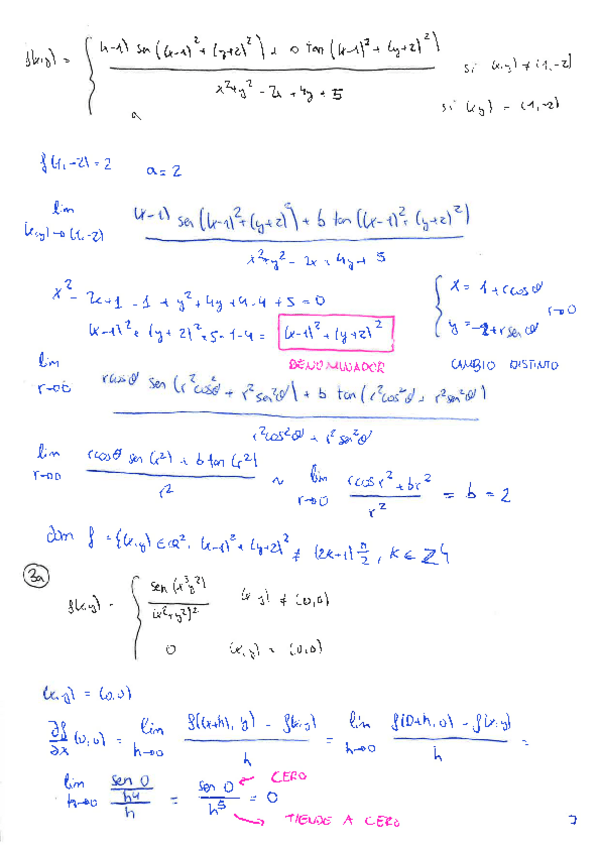 f(x,y) = { ((x-1) sen((x-1)²+(y+2)²) + b tan((x-1)²+(y+2)²)) / (x²+y²-2x+4y+5) si (x,y) ≠ (1,-2)
a si (x,y) = (1,-2)
f(1,-2) = 2 a = 2
lim (x,y)→(1,-2) ((x-1) sen((x-1)²+(y+2)²) + b tan((x-1)²+(y+2)²)) / (x²+y²-2x+4y+5)
x² - 2x+1 -1 + y²+4y+4-4 +5 = 0 { x = 1+rcosθ
(x-1)²+(y+2)²+5-1-4 = (x-1)²+(y+2)² y = -2+rsenθ r→0
DENOMINADOR CAMBIO DISTINTO
lim r→0 (rcosθ sen(r²cos²θ + r²sen²θ) + b tan(r²cos²θ + r²sen²θ)) / (r²cos²θ + r²sen²θ)
lim r→0 (rcosθ sen(r²) + b tan(r²)) / r² ~ lim r→0 (rcos r² + br²) / r² = b = 2
dom f = {(x,y) ∈ R², (x-1)²+(y+2)² ≠ (2k+1) π/2, k ∈ Z}
3a
f(x,y) = { sen(x³y²) / (x²+y²)² (x,y) ≠ (0,0)
0 (x,y) = (0,0)
(x,y) = (0,0)
∂f/∂x (0,0) = lim h→0 (f((x+h), y) - f(x,y)) / h = lim h→0 (f(0+h, 0) - f(x,y)) / h =
lim h→0 (sen 0 / h⁴) / h = sen 0 / h⁵ = 0 ← CERO
→ TIENDE A CERO
7